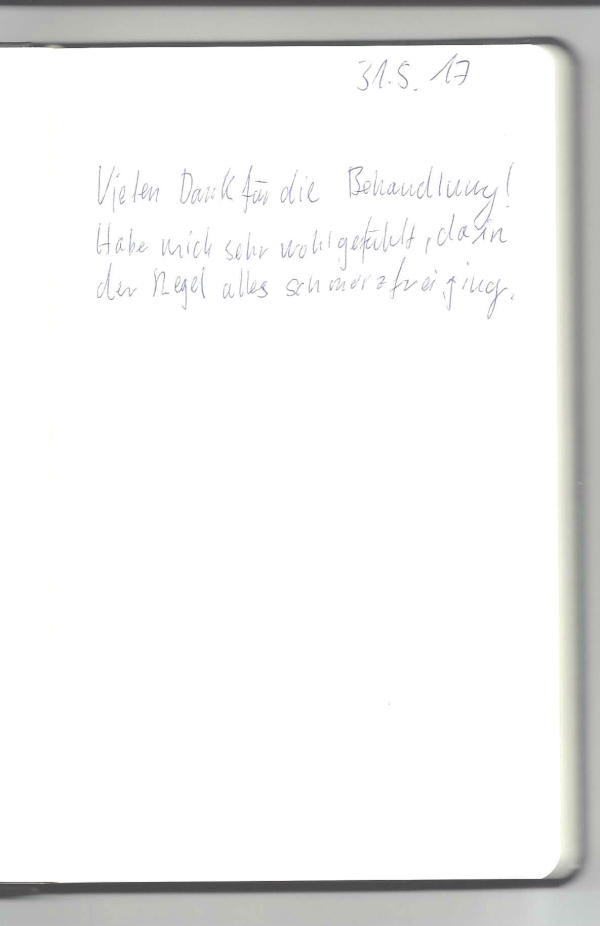 31.5. 17
Vielen Dank für die Behandlung!
Habe mich sehr wohl gefühlt, da in
der Regel alles schmerzfrei ging.